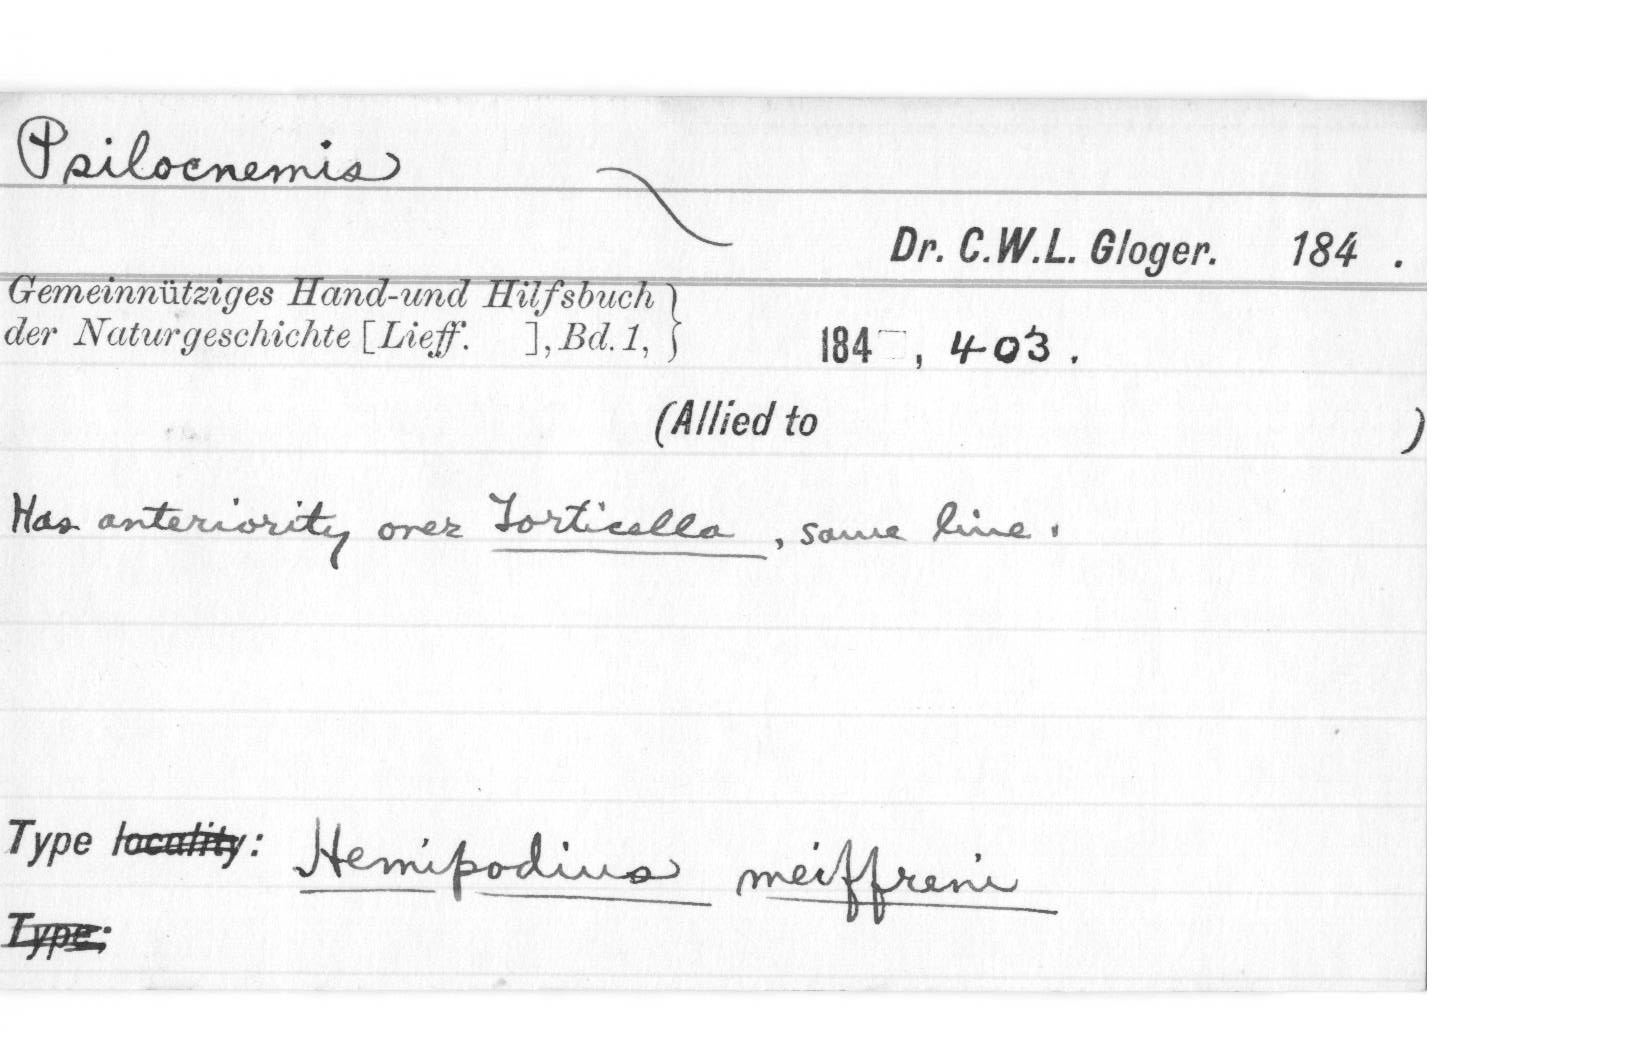 Psilocnemis
Dr. C.W.L. Gloger. 184 .
Gemeinnütziges Hand-und Hilfsbuch
der Naturgeschichte [Lieff. ], Bd. 1, } 184 , 403 .
(Allied to )
Has anteriority over Torticella, same line.
Type locality: Hemipodius meiffreni
Type: